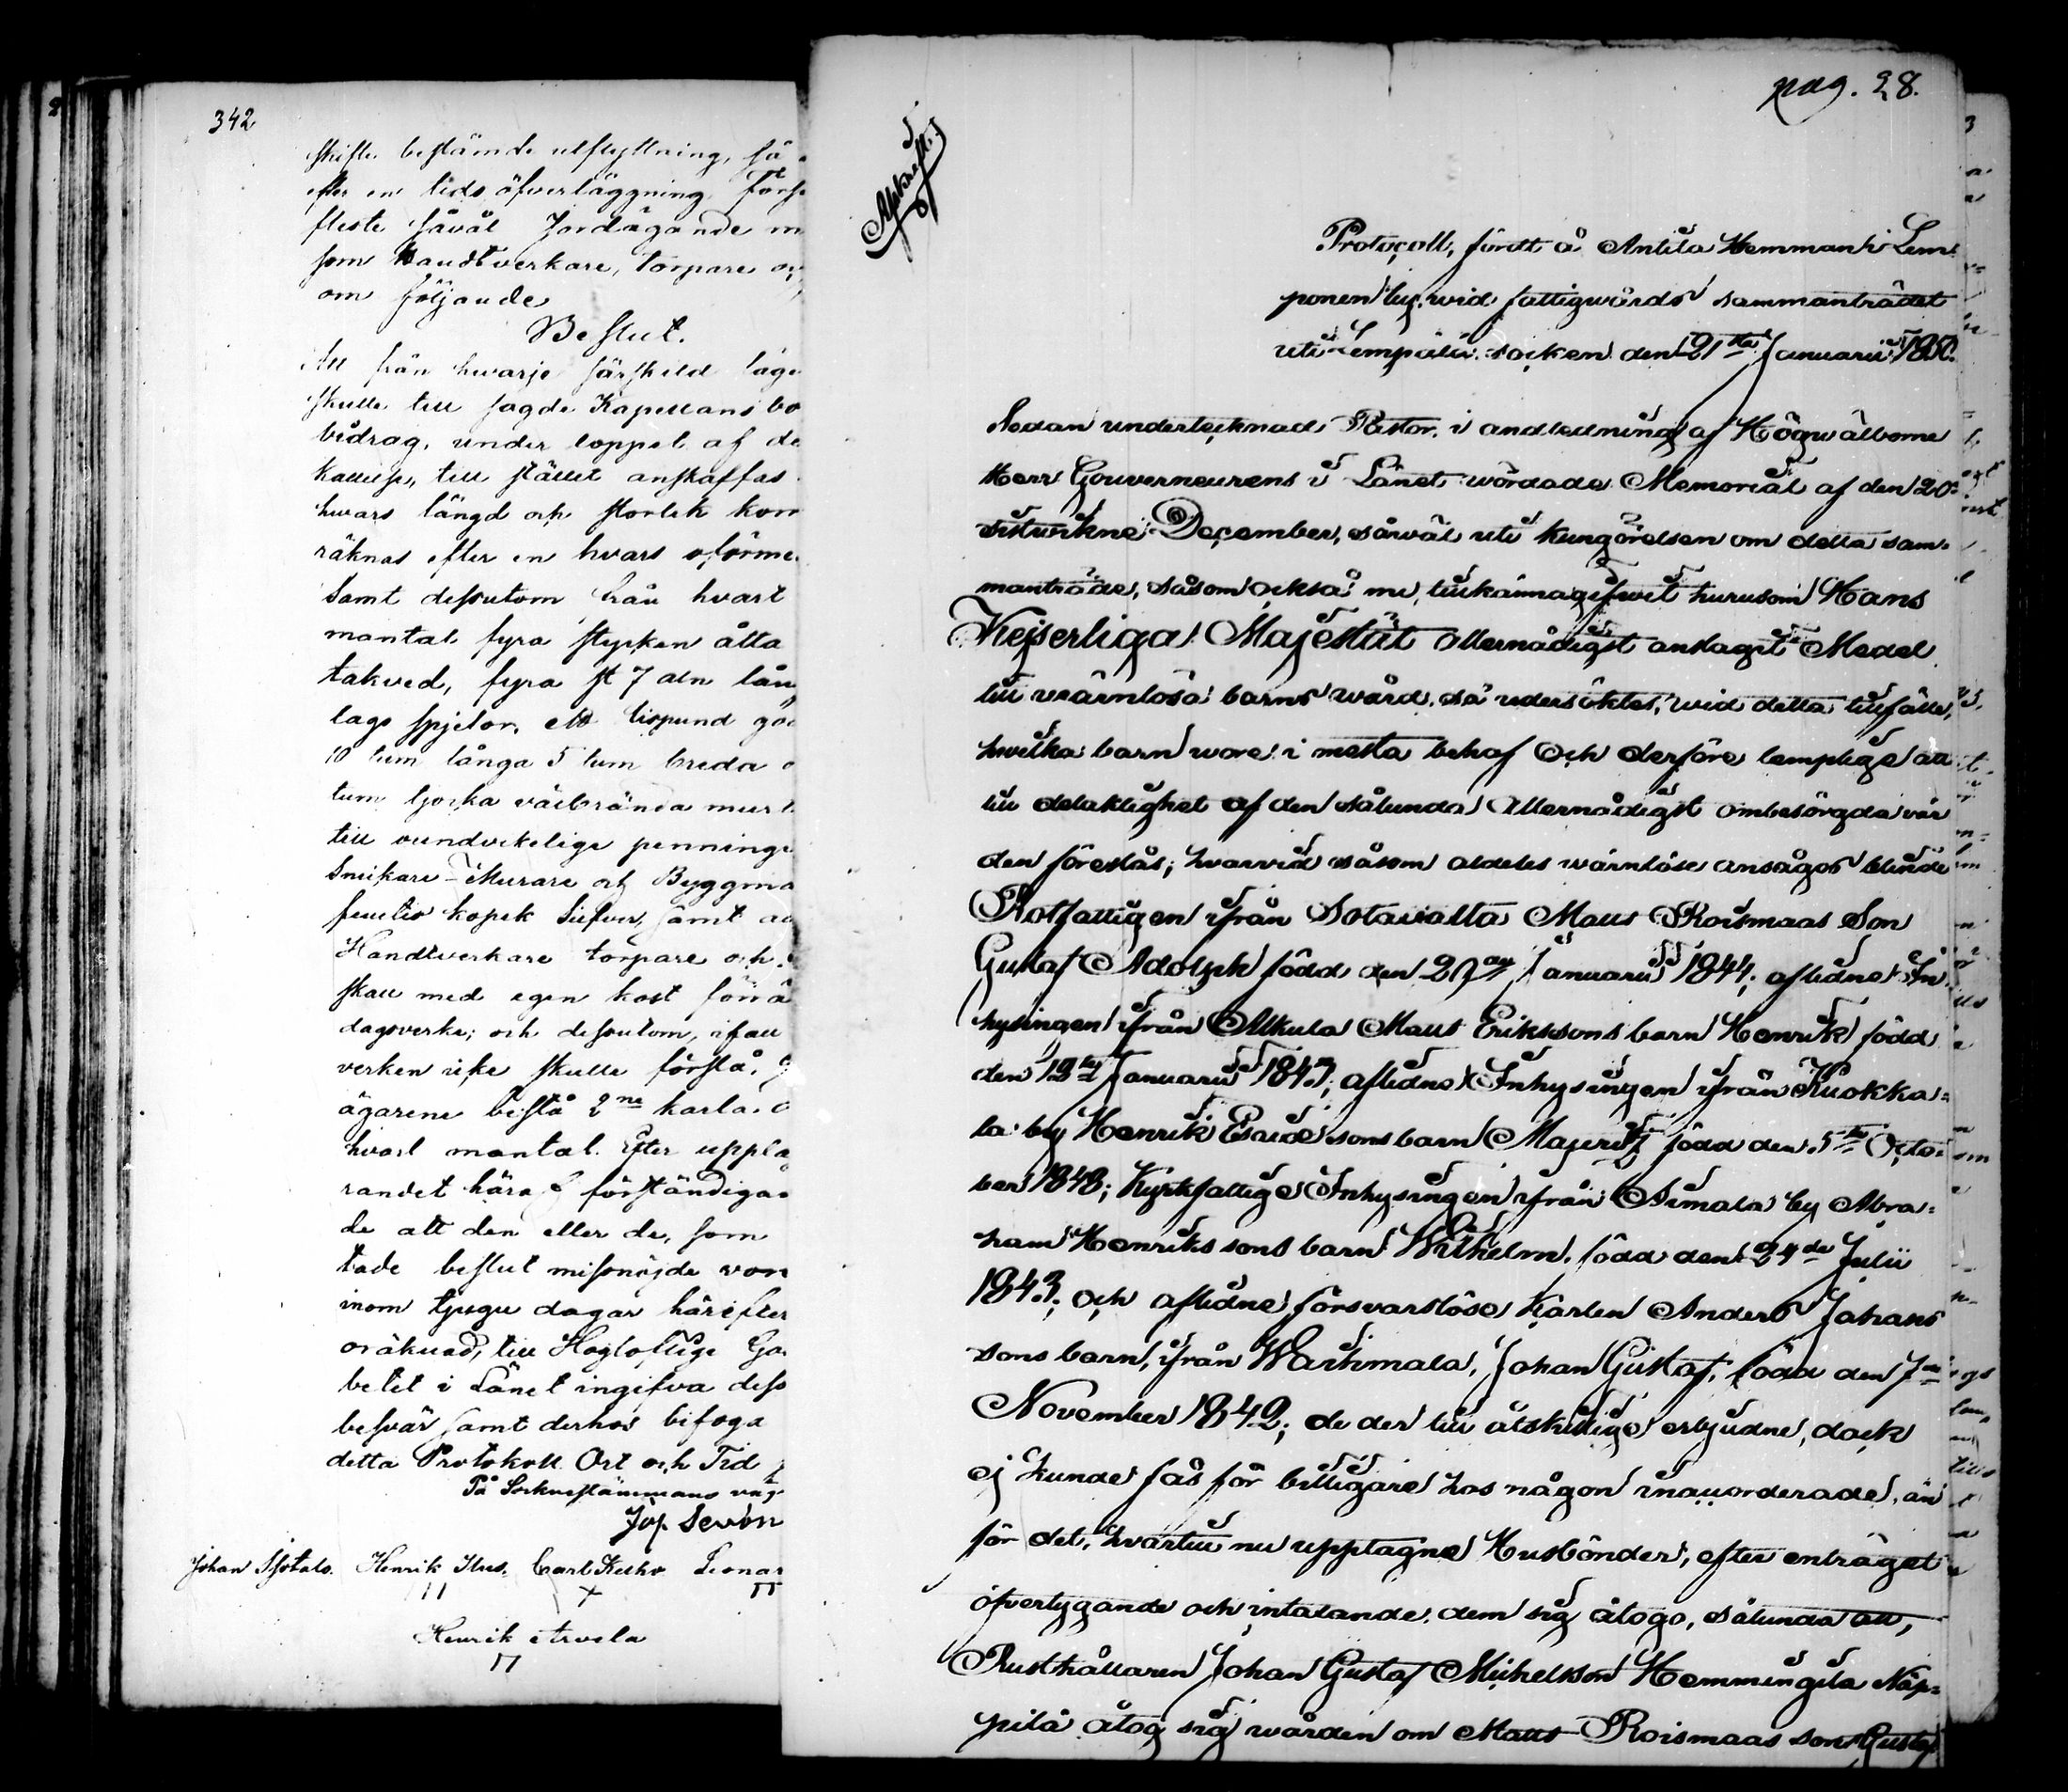 342
skifte bestämde utflyttning, så
efter en tids öfverläggning förse
fleste såväl Jordägande m
som Handtverkare, torpare oc
om följande
Beslut.
Att från hwarje särskild läge
skulle till sagde Kapellansbo
bidrag, under loppet af de
kallelse, till stället anskaffas
hvars längd och storlek kom
räknas efter en hvars oförme
Samt dessutom från hvart
mantal fyra stycken åtta
takved, fyra st 7 aln lån
lags spjelor, ett lispund go
10 tum långa 5 tum breda
tum tjocka välbrända murt
till oundvikelige penninge
Snickare- Murare och Byggma
femtio kopek Silfver, samt
Handtverkare torpare och
skall med egen kost förrä
dagsverke; och dessutom, ifall
verken icke skulle förslå,
ägarene bestå 2ne karla
hvart mantal. Efter uppla
randet häraf förständiga
de att den eller de, som
tade beslut missnöjde vor
inom tjugu dagar härefter
oräknad, till Höglofliga Go
betet i Länet ingifva dess
besvär samt derhos bifoga
detta Protokoll. Ort och Tid
På Socknestämmans väg
Jos. Sevón
Johan Henrik Ilus. Carl Kesko Leonar
Henrik Arvela
pag. 28.
Afskrift.
Protocoll, fördt å Antila Hemman i Lem-
ponen by, wid fattigwårds sammanträdet
uti Lempälä socken den 21sta Januarii 1850.
Sedan undertecknad Pastor, i andledning af Högwälborne
Herr Gouverneurens i Länet wördade Memorial af den 20
sistwikne December, såwäl uti kungörelsen om detta sam-
manträde, såsom också nu, tillkännagifwit hurusom Hans
Kejserliga Majestät allernådigst anslagit Medel
till wärnlösa barns wård, så undersöktes, wid detta tillfälle,
hwilka barn wore i mesta behof och derföre lemplige att
till delaktighet af den sålunda Allernådigst ombesörgda vår
den föreslås; hvarvid såsom aldeles wärnlöse ansågos blinde
Rotfattigen ifrån Sotavalta Matts Roismaas Son
Gustaf Adolph född den 27de Januarii 1844; aflidne In
hysingen ifrån Alkula Matts Erikssons barn Henrik född
den 12te Januarii 1847; aflidne Inhysingen ifrån Kuokka-
la by Henrik Esaiæsons barn Majerith född den 5te Octo-
ber 1848; Kyrkfattige Inhysingen ifrån Simala by Abra-
ham Henrikssons barn Wilhelm, född den 24de Julii
1843; och aflidne försvarslöse Karlen Anders Johans
sons barn, ifrån Warhmala, Johan Gustaf, född den 7de
November 1842; de der till åtskillige erbjudne, dock
ej kunde fås för billigare hos någon inackorderade, än
för det, hvartill nu upptagne Husbönder, efter enträget
öfvertygande och intalande, dem sig åtogo, sålunda att,
Rusthållaren Johan Gustaf Michelsson Hemmingilä Näp-
pilä åtog sig wården om Matts Roismaas son Gustaf